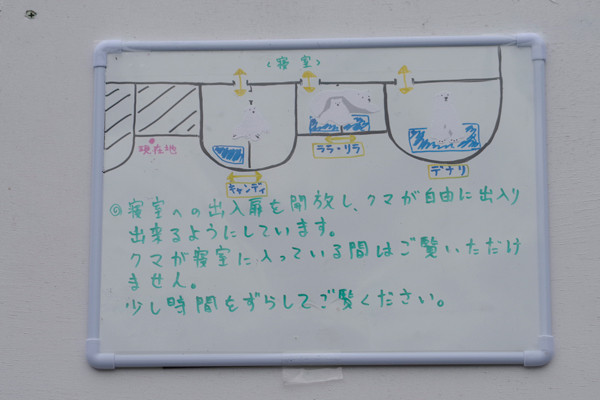 (寝室)
現在地
キャンディ
ララ・リラ
デナリ
◎寝室への出入扉を開放し、クマが自由に出入り
出来るようにしています。
クマが寝室に入っている間はご覧いただけ
ません。
少し時間をずらしてご覧ください。